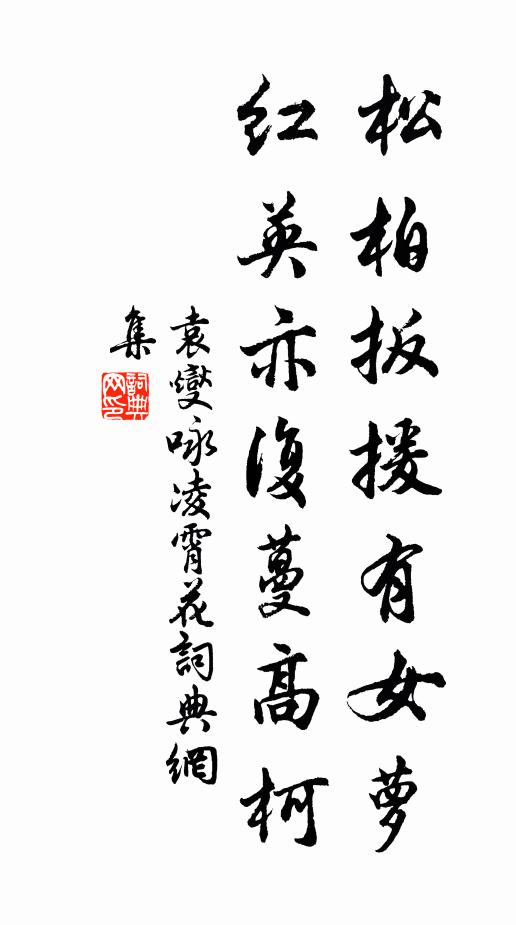 松柏扳援有女萝
紅英亦復蔓高柯
袁燮咏凌霄花詞典網
集
詞典
网印